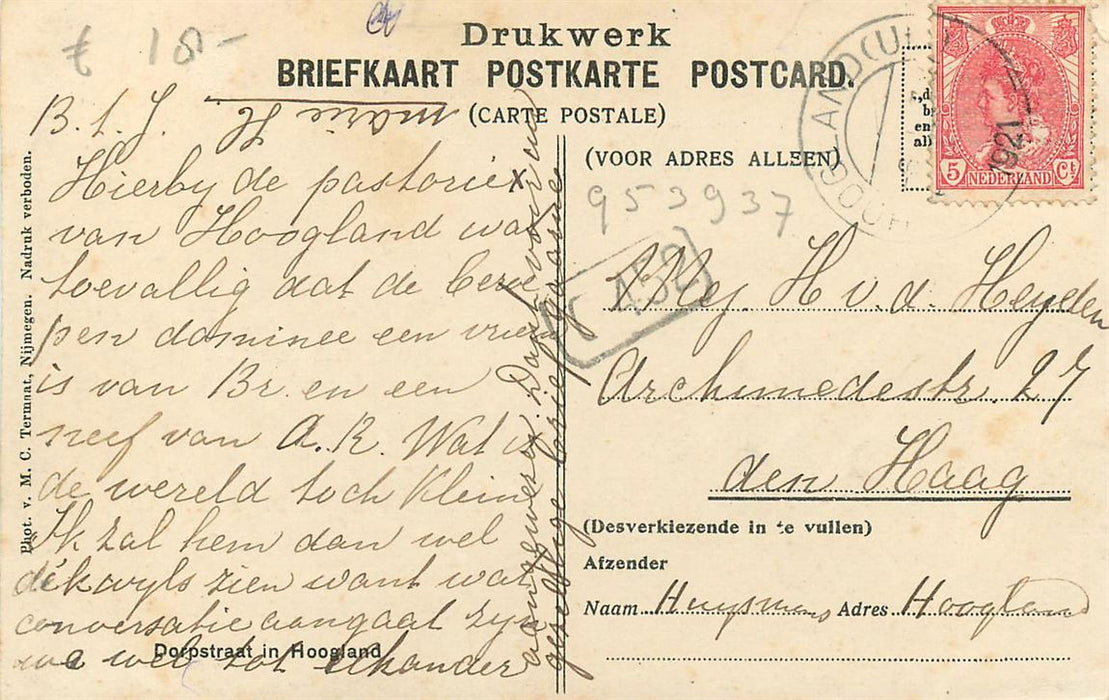 € 18-
Drukwerk
BRIEFKAART POSTKARTE POSTCARD.
(CARTE POSTALE)
Phot. v. M. C. Termaat, Nijmegen. Nadruk verboden.
B. L. J.
Hierbij de pastorie x
van Hoogland was
toevallig dat de beroe
pen dominee een vrien
is van Br. en een
neef van A.R. Wat is
de wereld toch klein
Ik zal hem dan wel
dikwyls zien want wat
conversatie aangaat zyn
we wel tot elkander
aangewezen. Dank voor uw
gezellige brief
Marie H
Dorpstraat in Hoogland
(VOOR ADRES ALLEEN)
953937
452
HOOGLAND (U)
1921
5 NEDERLAND Ct
Mej H v.d. Heyden
Archimedestr. 27
den Haag
(Desverkiezende in te vullen)
Afzender
Naam Huysmans Adres Hoogland